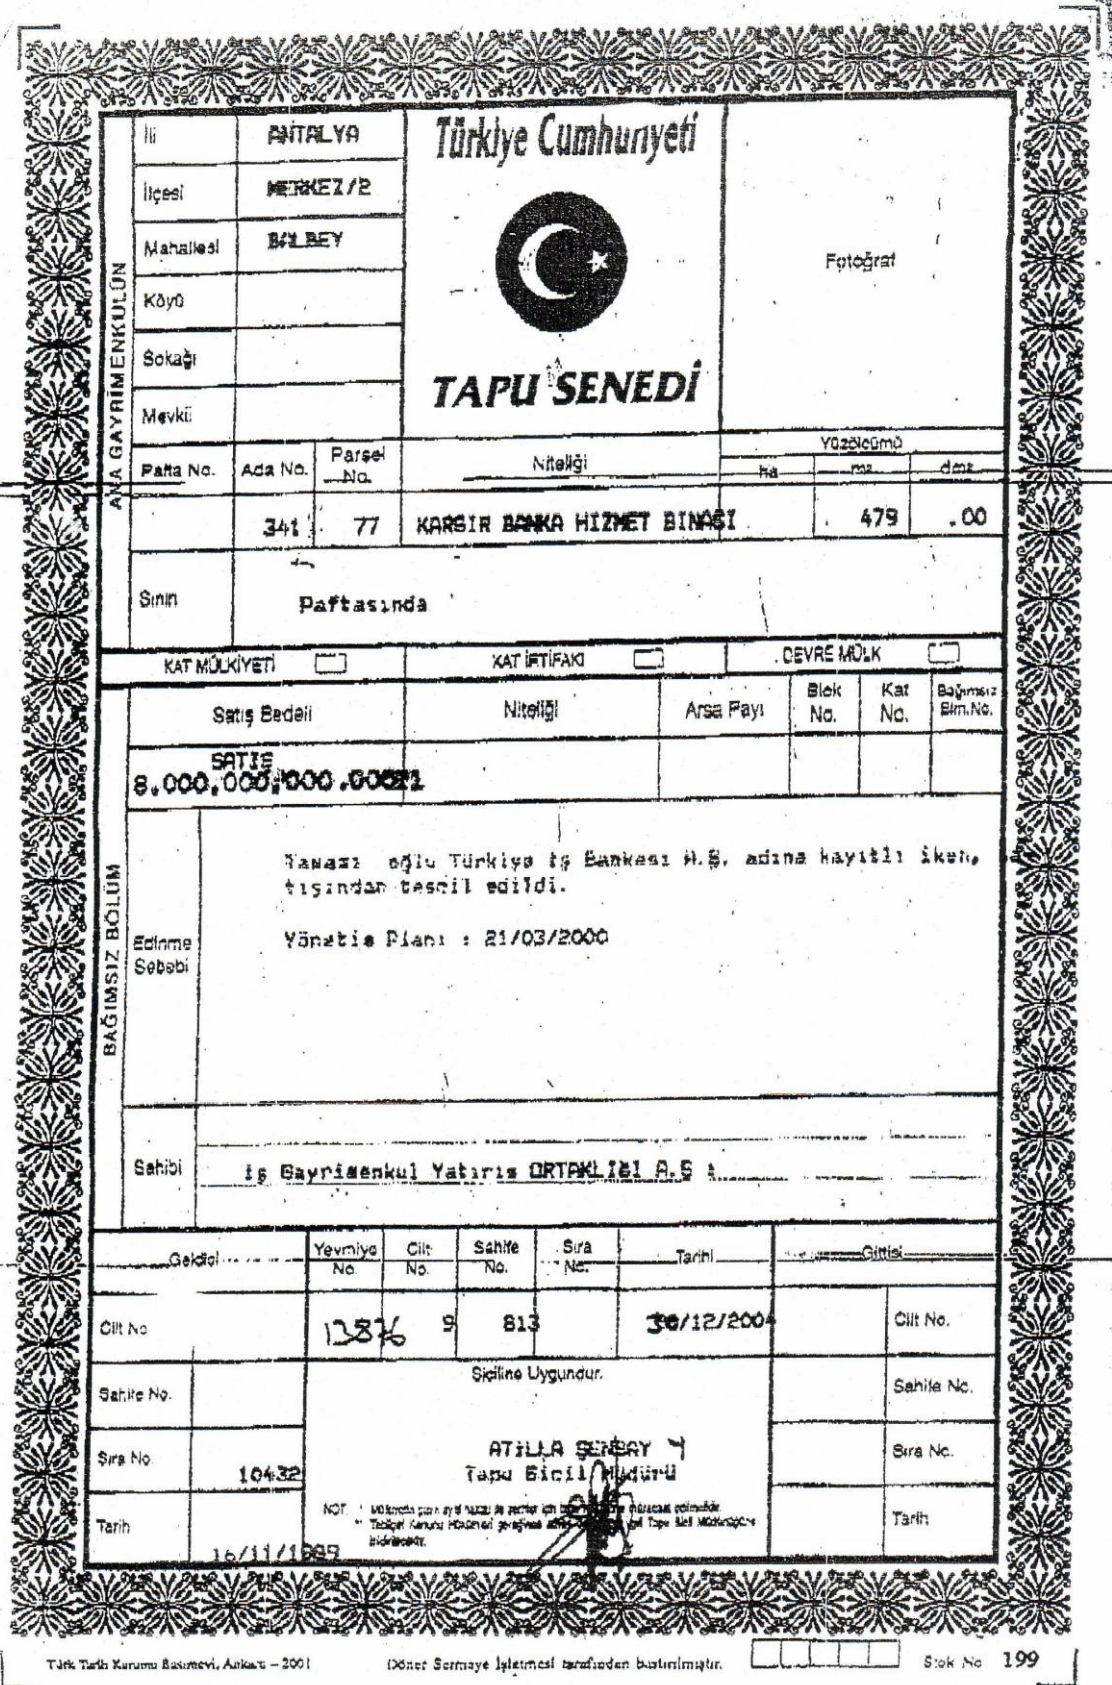 Türkiye Cumhuriyeti
TAPU SENEDİ
Fotoğraf
ANA GAYRİMENKULÜN
İli ANTALYA
İlçesi MERKEZ/2
Mahallesi BALBEY
Köyü
Sokağı
Mevkii
Pafta No. Ada No. Parsel No. Niteliği Yüzölçümü ha m2 dm2
341 77 KARGIR BANKA HIZMET BINASI 479 .00
Sınırı Paftasında
KAT MÜLKİYETİ KAT İRTİFAKI DEVRE MÜLK
BAĞIMSIZ BÖLÜM
Satış Bedeli Niteliği Arsa Payı Blok No. Kat No. Bağımsız Blm.No.
SATIS
8.000.000.000.000
Edinme Sebebi
Tamamı oğlu Türkiye İş Bankası A.Ş. adına kayıtlı iken,
tışından tescil edildi.
Yönetim Planı : 21/03/2000
Sahibi İş Gayrimenkul Yatırım ORTAKLIĞI A.Ş :
Geldisi Yevmiye No. Cilt No. Sahife No. Sıra No. Tarihi Gittisi
Cilt No 13876 9 813 30/12/2004 Cilt No.
Siciline Uygundur.
Sahife No. Sahife No.
Sıra No. 10432 Sıra No.
ATİLLA ŞENBAY
Tapu Sicil Müdürü
NOT:
Tarih 16/11/1989 Tarih
Türk Tarih Kurumu Basımevi, Ankara – 2001 Döner Sermaye İşletmesi tarafından bastırılmıştır. Stok No 199